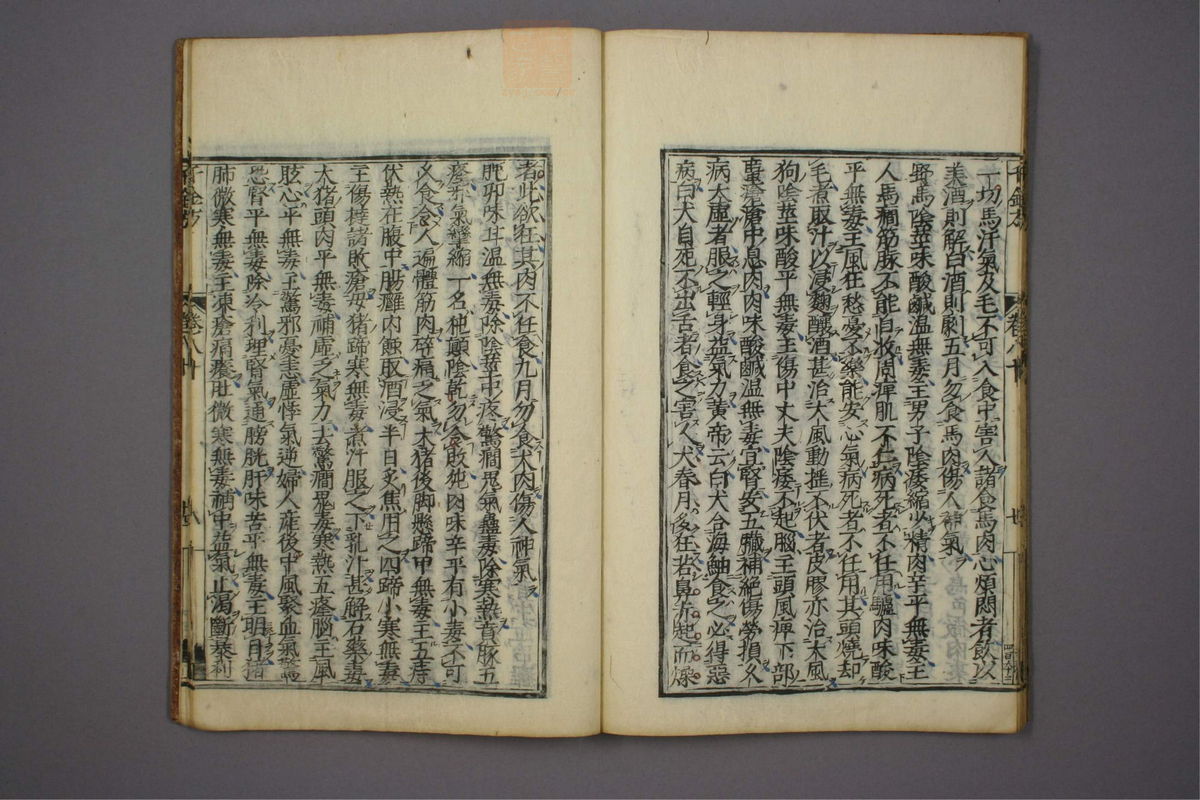 一切馬汗氣及毛不可入食中害人諸食馬肉心煩悶者飲以
美酒則解白酒則劇五月勿食馬肉傷人神氣
野馬陰莖味酸鹹溫無毒主男子陰痿縮少精肉辛平無毒主
人馬癇筋脉不能自收周痺肌不仁病死者不任用驢肉味酸
平無毒主風狂愁憂不樂能安心氣病死者不任用其頭燒却
毛煮取汁以浸麴釀酒甚治大風動搖不伏者皮膠亦治大風
狗陰莖味酸平無毒主傷中丈夫陰痿不起腦主頭風痺下部
䘌瘡瘡中息肉肉味酸鹹溫無毒宜腎安五臟補絕傷勞損久
病大虛者服之輕身益氣力黃帝云白犬合海鮋食之必得惡
病白犬自死不出舌者食之害人犬春月多狂若鼻赤起而燥
者此欲狂其肉不任食九月勿食犬肉傷人神氣
㹠卵味甘溫無毒除陰莖中疼驚癇鬼氣蠱毒除寒熱賁豚五
癃邪氣攣縮一名㹠顛陰乾勿令敗㹠肉味辛平有小毒不可
久食令人遍體筋肉碎痛乏氣大猪後脚懸蹄甲無毒主五痔
伏熱在腹中腸癰內蝕取酒浸半日炙焦用之四蹄小寒無毒
主傷撻諸敗瘡母猪蹄寒無毒煮汁服之下乳汁甚解石藥毒
大猪頭肉平無毒補虛乏氣力去驚癇鬼毒寒熱五癃腦主風
眩心平無毒主驚邪憂恚虛悸氣逆婦人產後中風聚血氣驚
恐腎平無毒除冷利理腎氣通膀胱肝味苦平無毒主明目猪
肺微寒無毒主凍瘡痛癢肚微寒無毒補中益氣止渴斷暴利
千金方